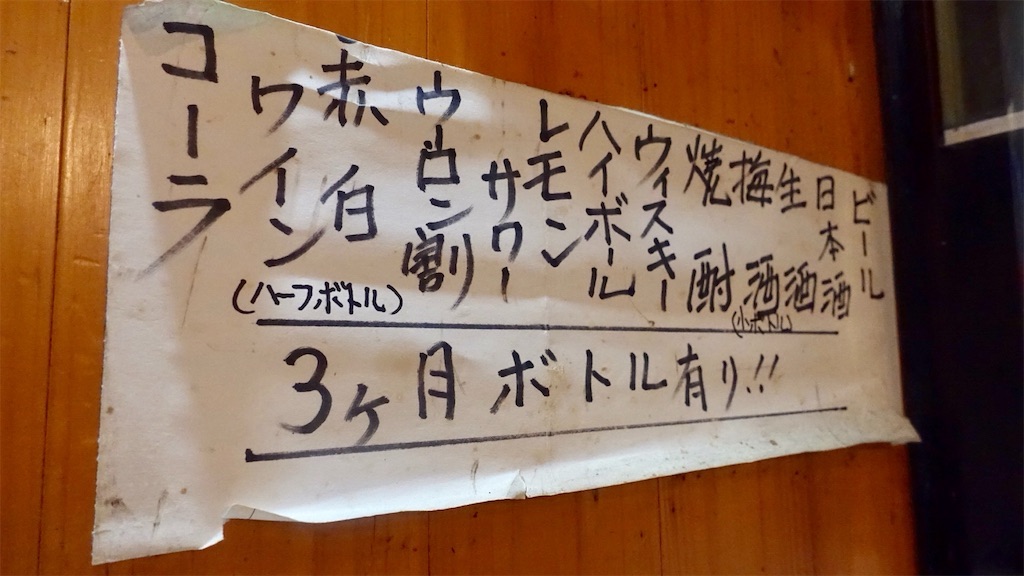 ビール
日本酒
生酒
梅酒
(小ボトル)
焼酎
ウィスキー
ハイボール
レモン
サワー
ウーロン割
赤白
ワイン
(ハーフボトル)
コーラ
3ヶ月ボトル有り!!